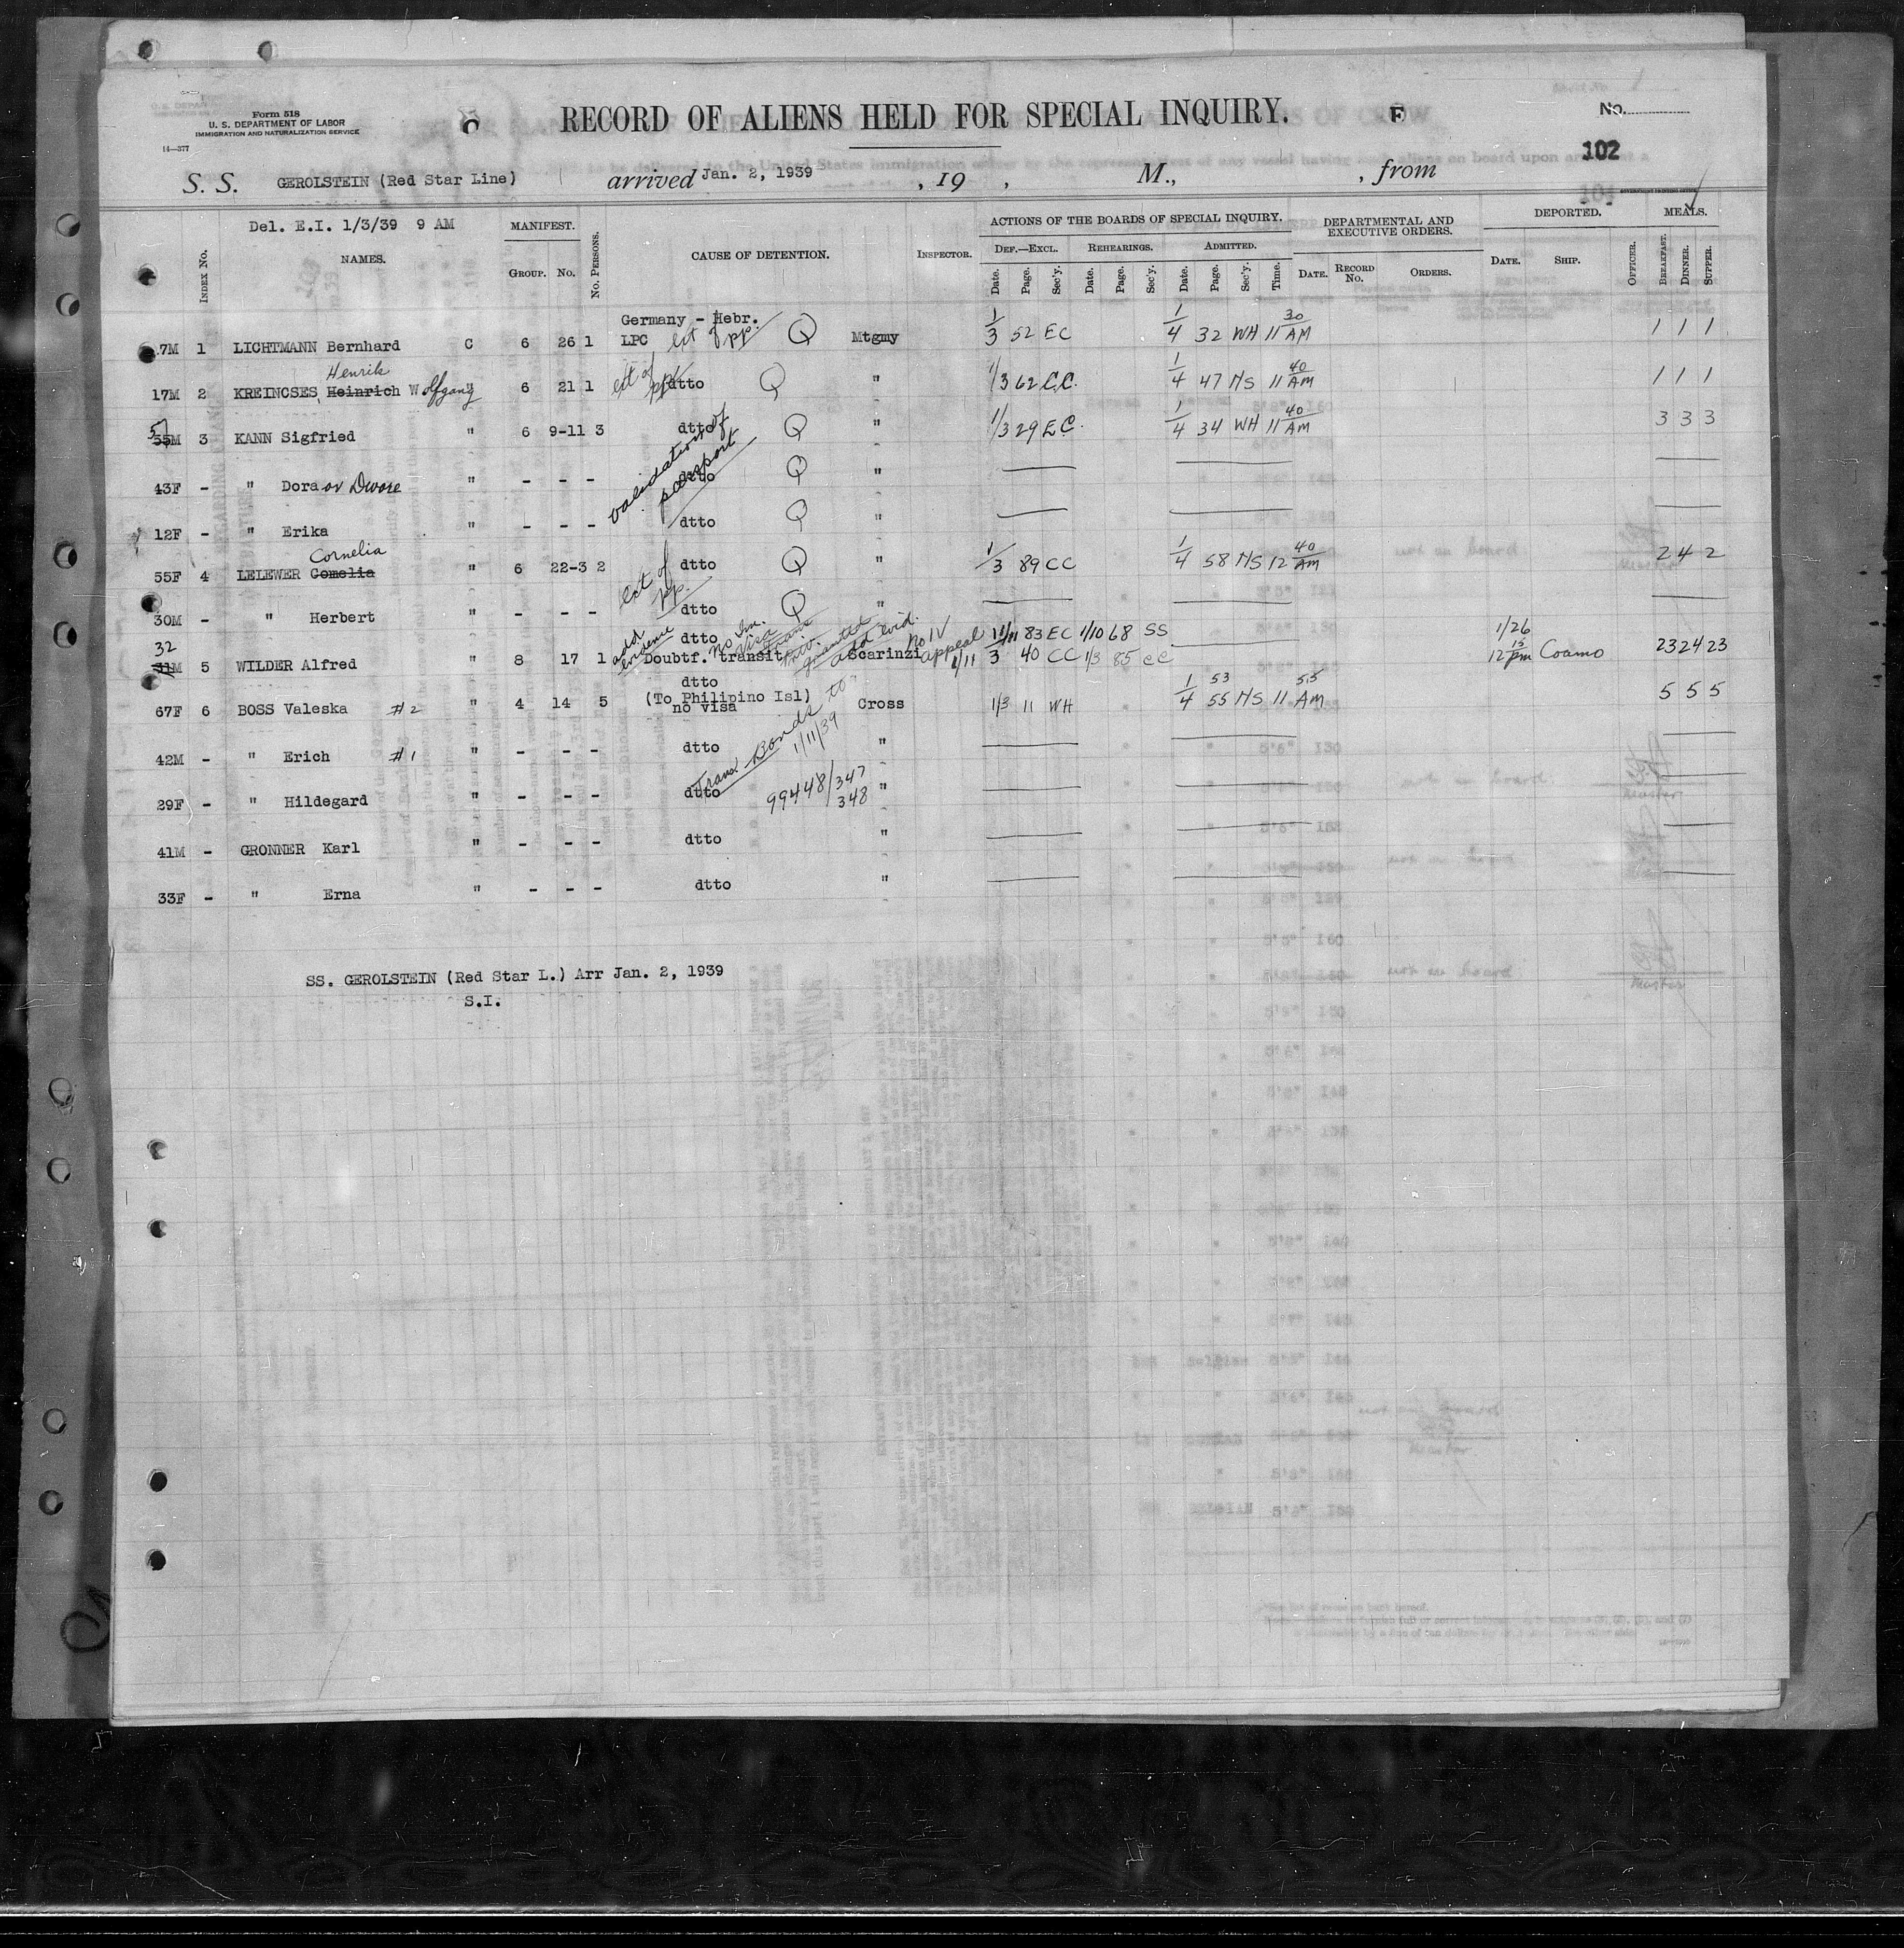 Form 518
U. S. DEPARTMENT OF LABOR
IMMIGRATION AND NATURALIZATION SERVICE
14—377
RECORD OF ALIENS HELD FOR SPECIAL INQUIRY.
No.
102
S. S. GEROLSTEIN (Red Star Line) arrived Jan. 2, 1939, 19 , M., , from
Del. E.I. 1/3/39 9 AM
INDEX No. NAMES. MANIFEST. GROUP. No. No. PERSONS. CAUSE OF DETENTION. INSPECTOR. ACTIONS OF THE BOARDS OF SPECIAL INQUIRY. DEPARTMENTAL AND EXECUTIVE ORDERS. DEPORTED. MEALS.
DEF.—EXCL. REHEARINGS. ADMITTED.
Date. Page. Sec'y. Date. Page. Sec'y. Date. Page. Sec'y. Time. DATE. RECORD No. ORDERS. DATE. SHIP. OFFICER. BREAKFAST. DINNER. SUPPER.
Germany - Hebr.
7M 1 LICHTMANN Bernhard C 6 26 1 LPC ext of pp. Q Mtgmy 1/3 52 EC 1/4 32 WH 11 30 AM 1 1 1
Henrik
17M 2 KREINCSES Heinrich Wolfgang " 6 21 1 ext of pp dtto Q " 1/3 62 C.C. 1/4 47 HS 11 40 AM 1 1 1
57 55M 3 KANN Sigfried " 6 9-11 3 dtto Q " 1/3 29 EC. 1/4 34 WH 11 40 AM 3 3 3
validation of passport
43F - " Dora or Dwore " - - - dtto Q "
12F - " Erika " - - - dtto Q "
Cornelia
55F 4 LELEWER Comelia " 6 22-3 2 ext of pp. dtto Q " 1/3 89 CC 1/4 58 HS 12 40 AM 2 4 2
30M - " Herbert " - - - dtto Q "
dtto 1/11 83 EC 1/10 68 SS 1/26
32 31M 5 WILDER Alfred " 8 17 1 add evidence no Im. Visa Doubtf. transit Scarinzi Appeal 1/11 3 40 CC 1/3 85 CC 12 15 pm Coamo 23 24 23
dtto
67F 6 BOSS Valeska #2 " 4 14 5 (To Philipino Isl) Cross 1/3 11 WH 1/4 53 55 HS 11 55 AM 5 5 5
no visa
42M - " Erich #1 " - - - dtto "
Trans Bonds to 1/11/39
29F - " Hildegard " - - - dtto 99448/347 348 "
41M - GRONNER Karl " - - - dtto "
33F - " Erna " - - - dtto "
SS. GEROLSTEIN (Red Star L.) Arr Jan. 2, 1939
S.I.